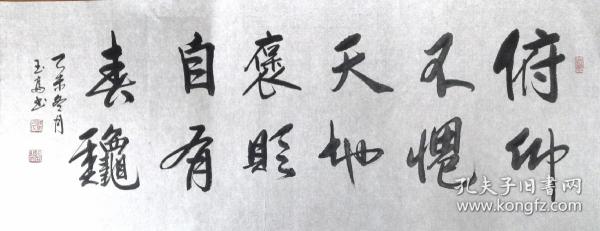 俯仰
不愧
天地
褒貶
自有
春龝
乙未冬月
孔夫子旧书网
www.kongfz.com